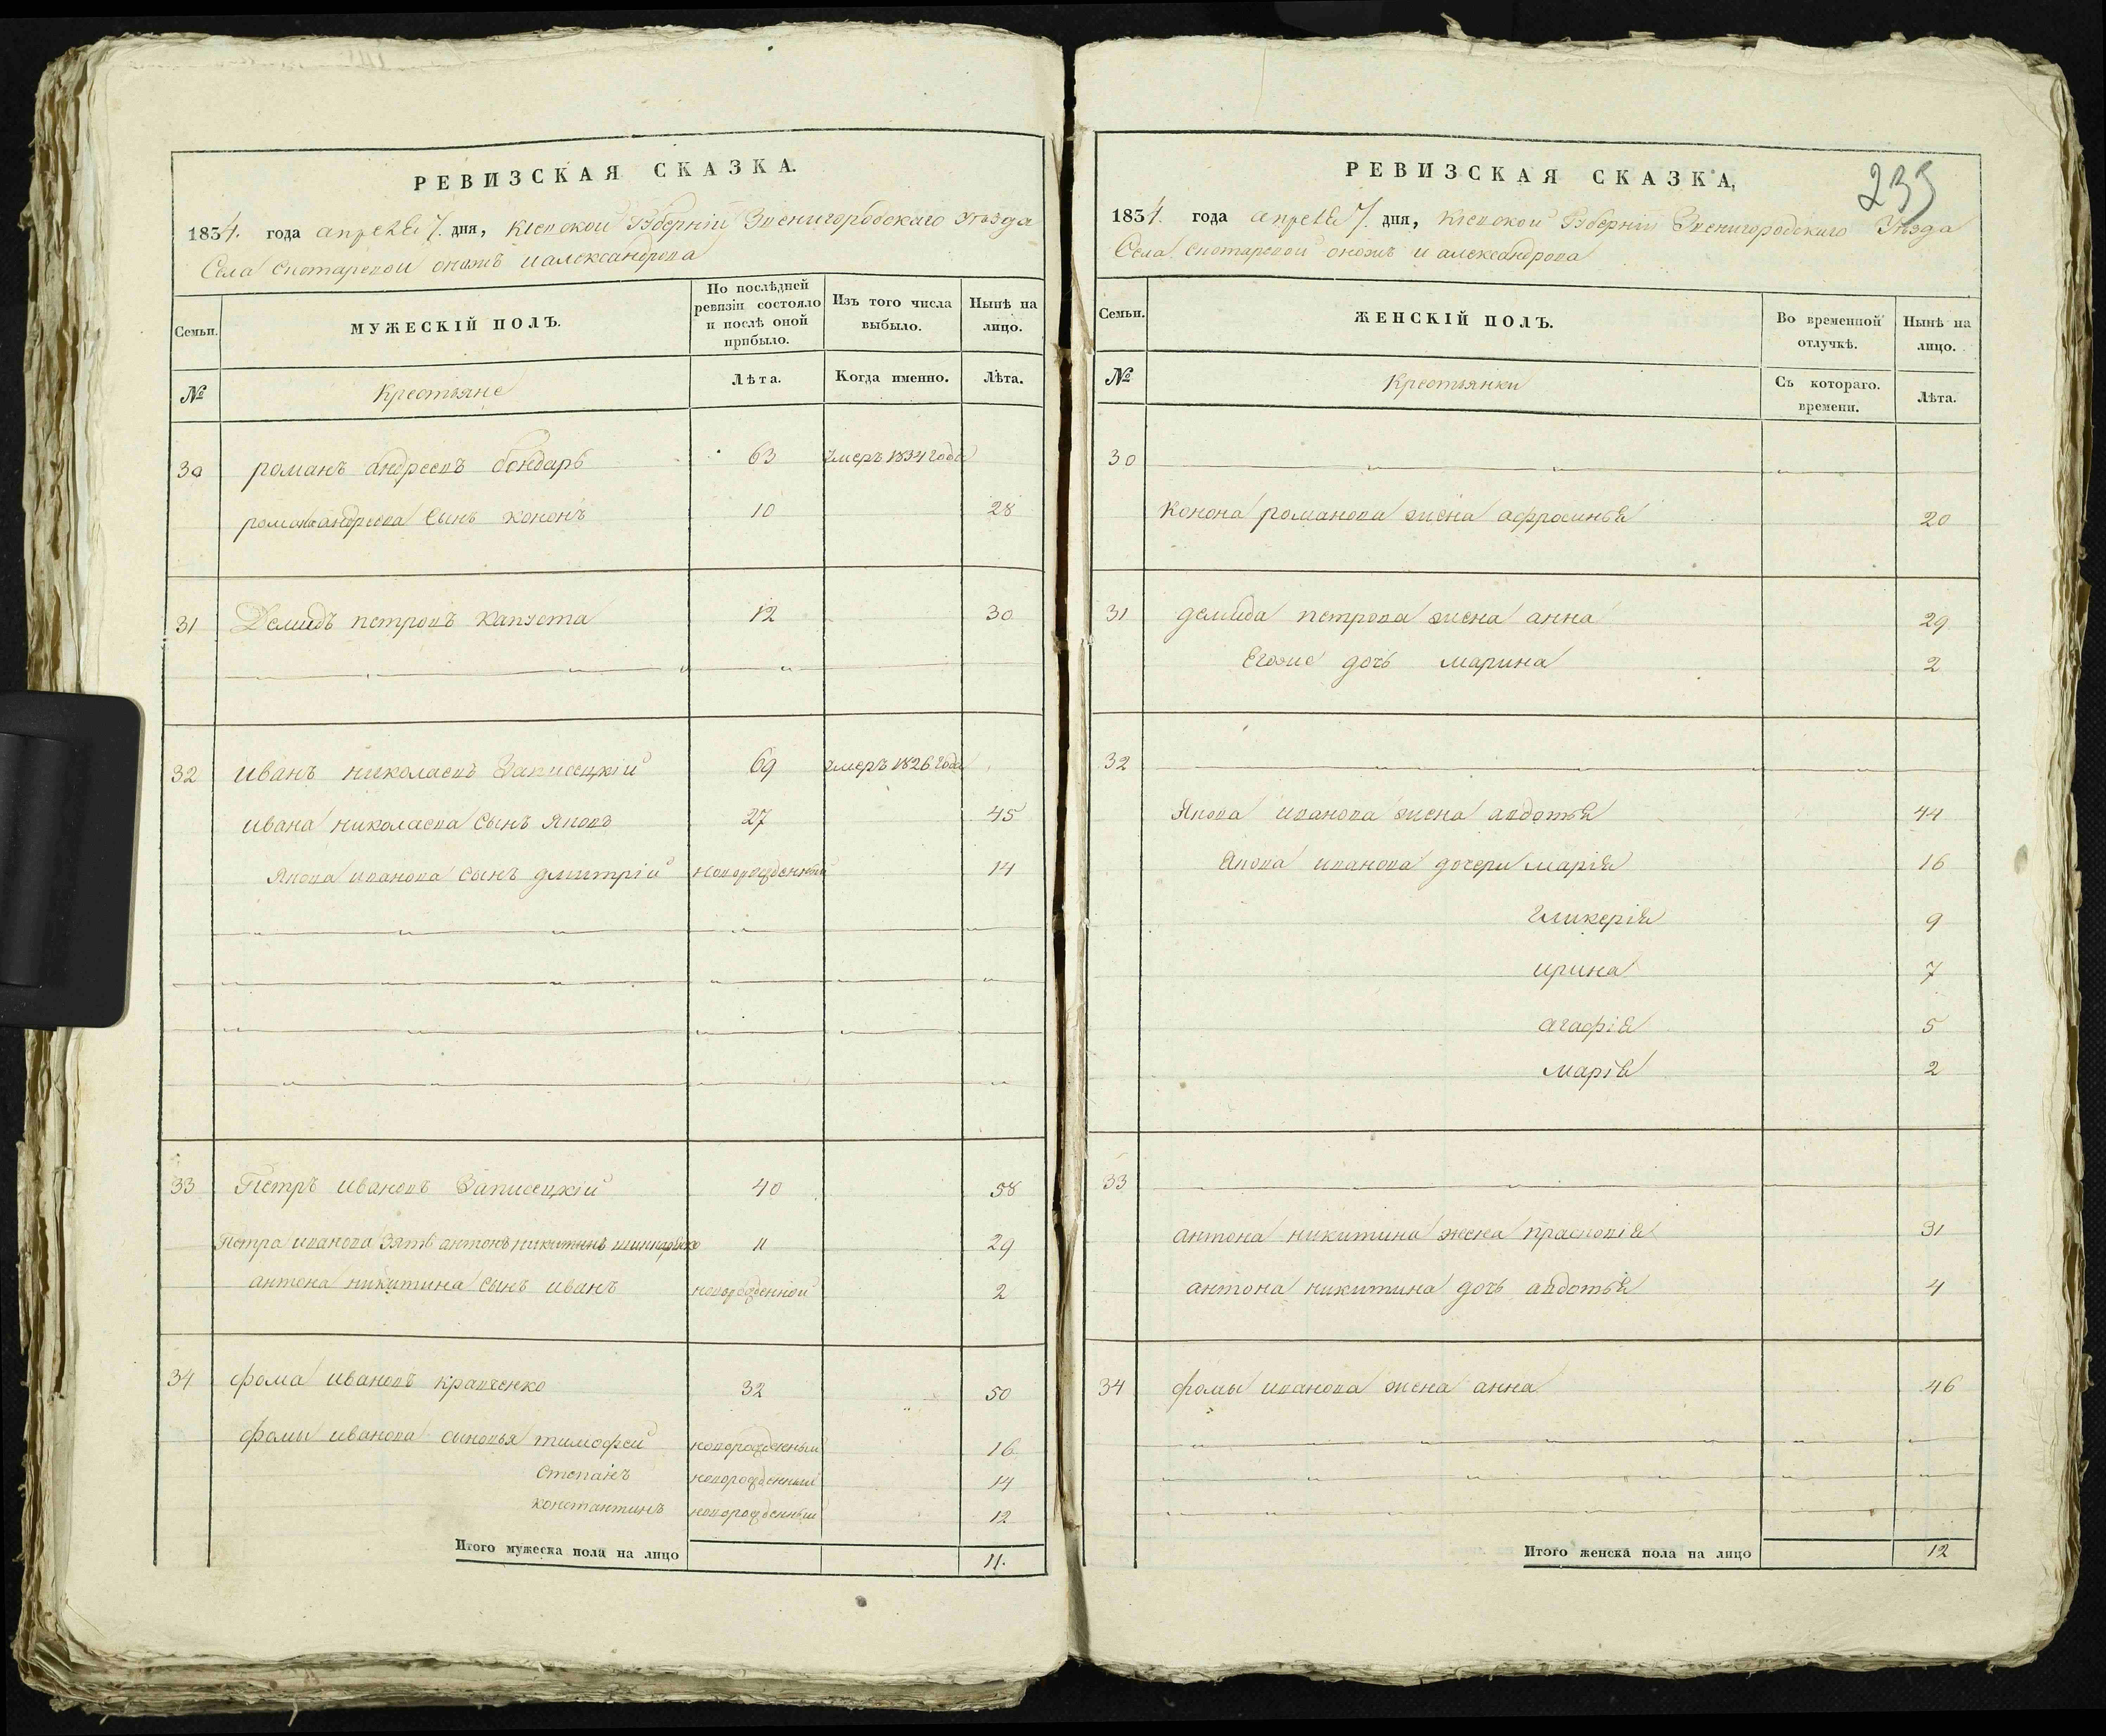 РЕВИЗСКАЯ СКАЗКА.
1834. года апреля 7. дня, Кіевской Губерніи Звенигородскаго Уѣзда
Села скотаревой оножъ и александрова
Семьи.
МУЖЕСКІЙ ПОЛЪ.
По послѣдней ревизіи состояло и послѣ оной прибыло.
Изъ того числа выбыло.
Нынѣ на лицо.
№
Крестьяне
Лѣта.
Когда именно.
Лѣта.
30 романъ андреевъ бондарь 63 умеръ 1834 года
романа андреева сынъ кононъ 10 28
31 Демидъ петровъ капуста 12 30
32 иванъ николаевъ Записецкій 69 умеръ 1826 года
ивана николаева сынъ яковъ 27 45
якова иванова сынъ дмитрій новорожденный 14
33 Петръ ивановъ Записецкій 40 58
Петра иванова зять антонъ никитинъ 11 29
антона никитина сынъ иванъ новорожденной 2
34 фома ивановъ кравченко 32 50
фомы иванова синовья тимофей новорожденный 16
степанъ новорожденный 14
константинъ новорожденный 12
Итого мужеска пола на лицо 11.
233
РЕВИЗСКАЯ СКАЗКА,
1834. года апреля 7. дня, Кіевской Губерніи Звенигородскаго Уѣзда
Села скотаревой оножъ и александрова
Семьи.
ЖЕНСКІЙ ПОЛЪ.
Во временной отлучкѣ.
Нынѣ на лицо.
№
Крестьянки
Съ котораго. времени.
Лѣта.
30
Конона романова жена афросинья 20
31 демида петрова жена анна 29
Егоже дочь марина 2
32
Якова иванова жена авдотья 44
якова иванова дочери марія 16
гликерія 9
ирина 7
агафія 5
марія 2
33
антона никитина жена прасковія 31
антона никитина дочь авдотья 4
34 фомы иванова жена анна 46
Итого женска пола на лицо 12